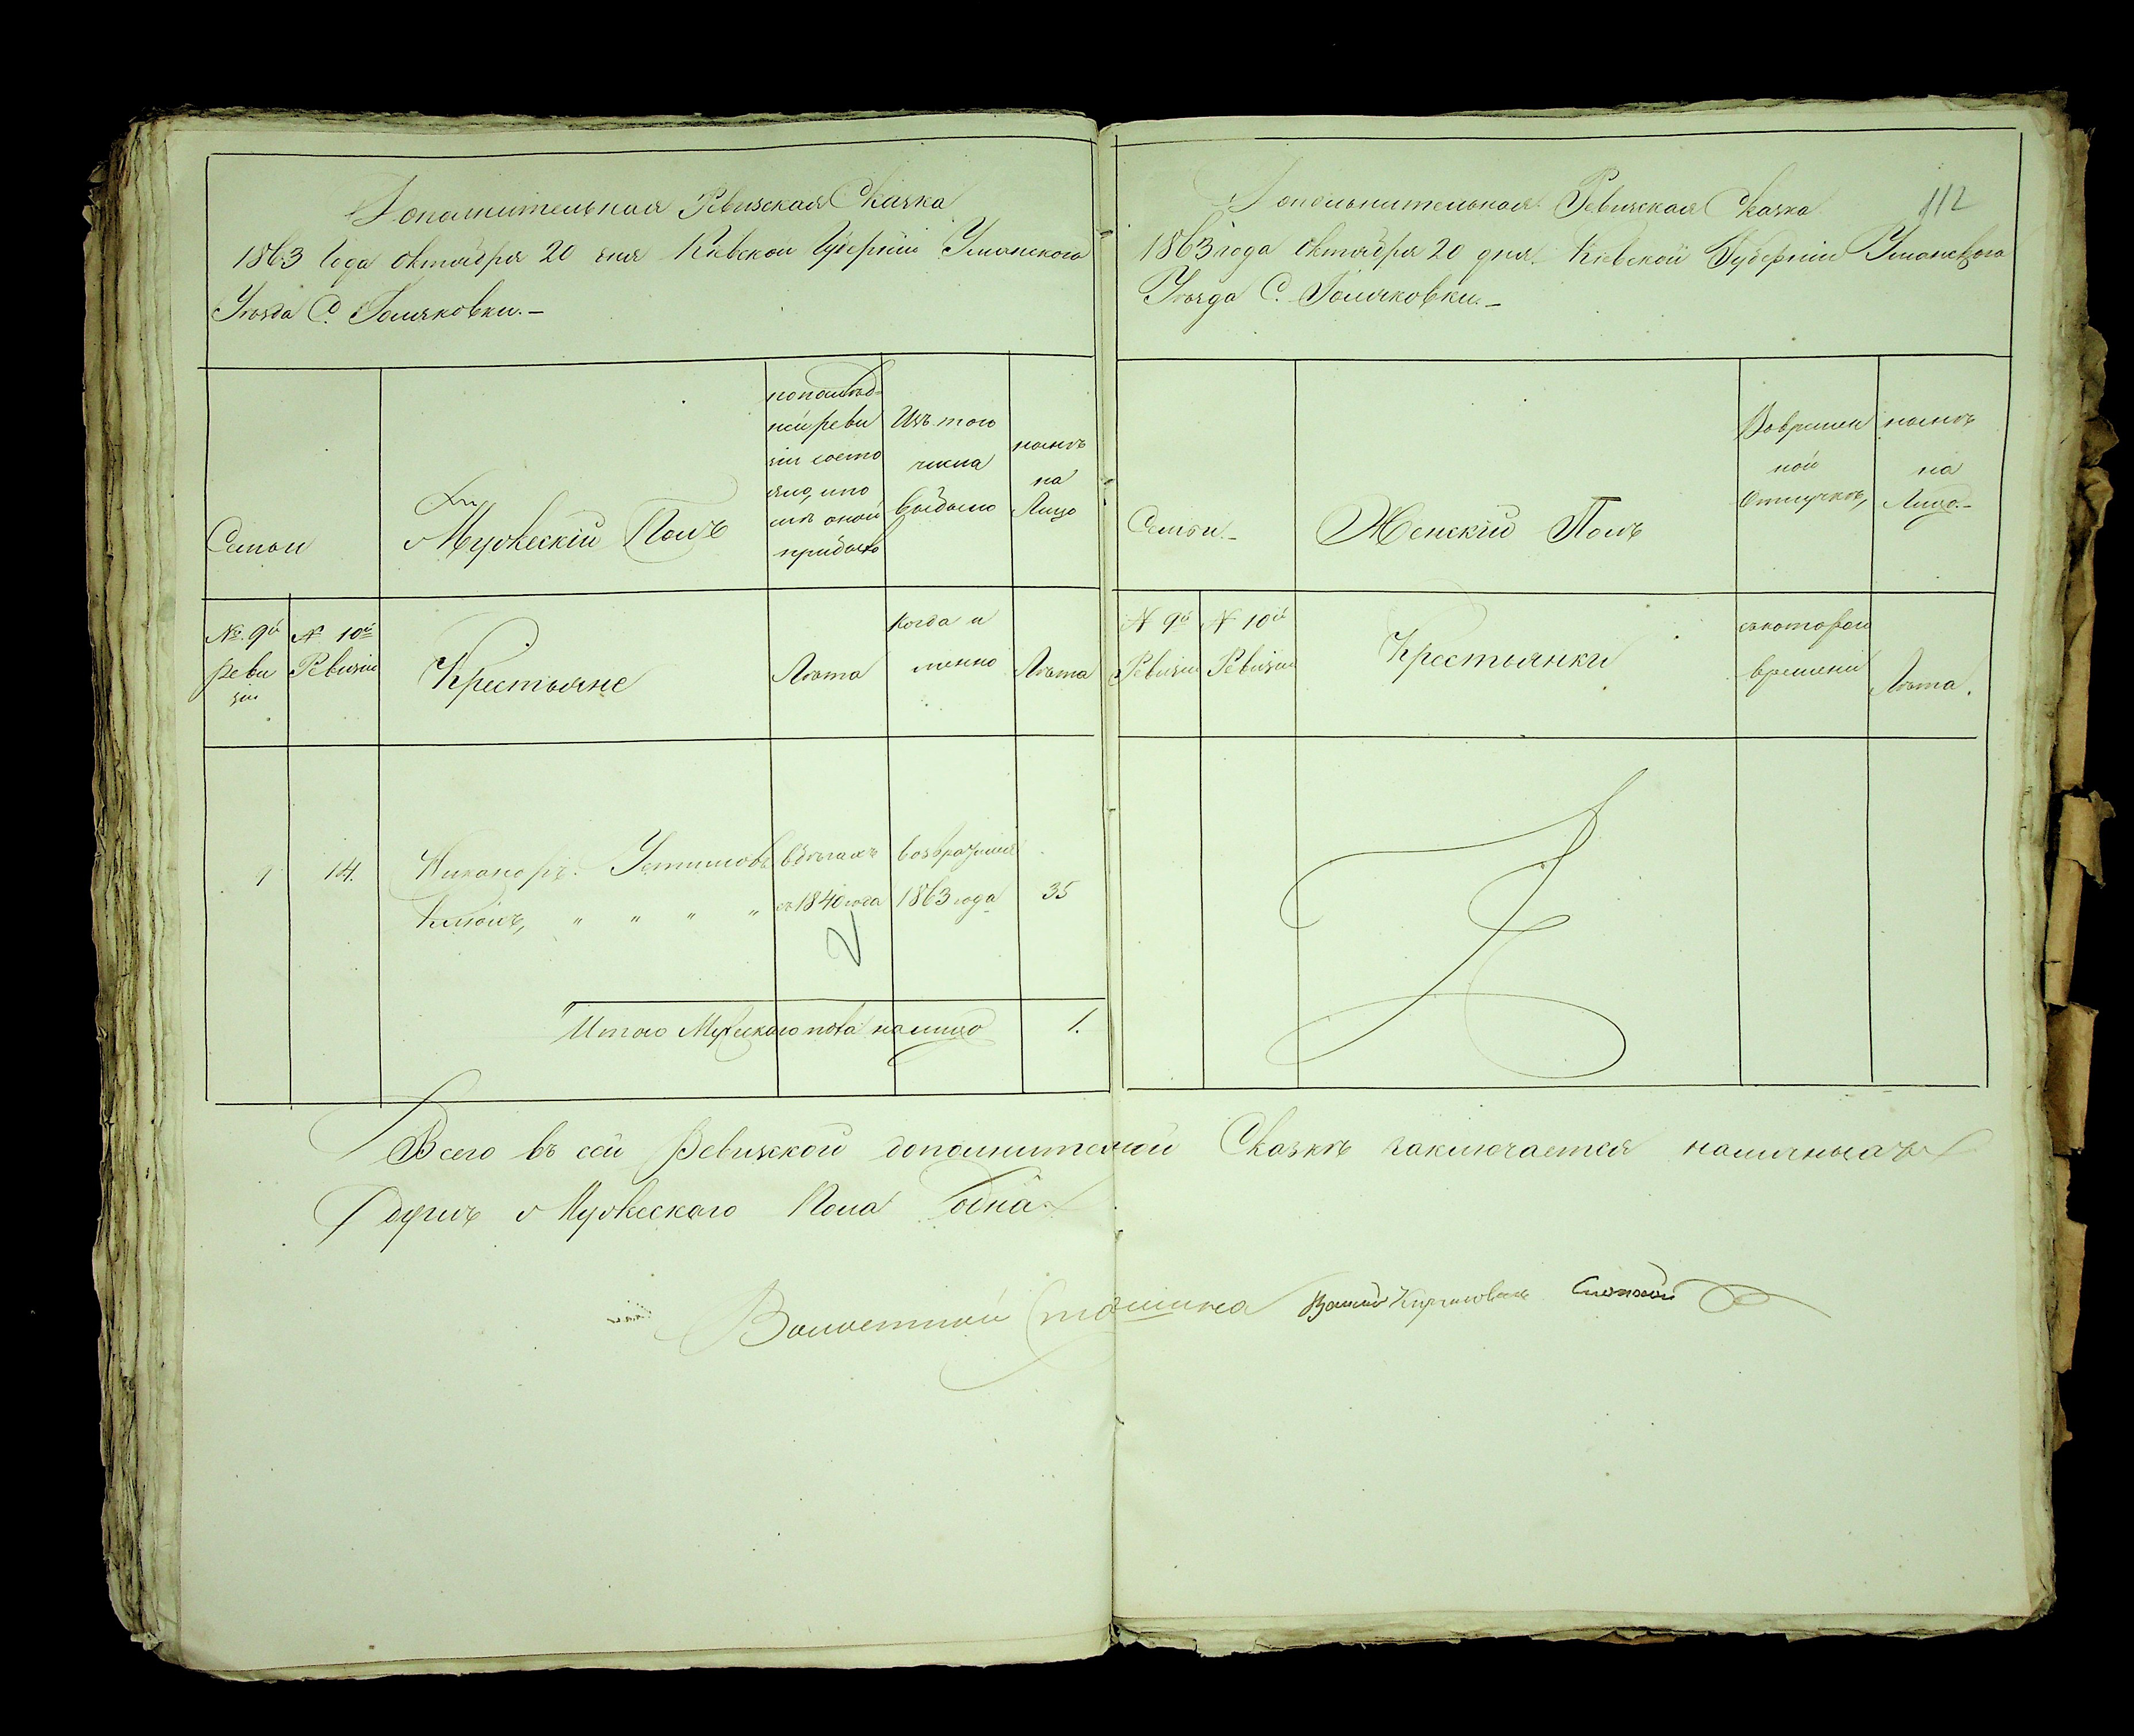 Дополнительная Ревизская Сказка
1863 Года октября 20 дня Кіевской Губерніи Уманскаго
Уѣзда С. Поляковки.–
Семьи
Мужескій Полъ
по послѣд-
ней реви
зіи состо
яло, и по
слѣ оной
прибыло
Изъ того
числа
выбыло
нынѣ
на
Лицо
№ 9й
Реви
зіи
№ 10й
Ревизіи
Крестьяне
Лѣта
Когда и
именно
Лѣта
1
14.
Никаноръ Устимовъ
въ бѣгахъ
съ 1840 года
2
возвратился
1863 года
35
" " " "
Итого Мужескаго пола на лицо 1.
112
Дополнительная Ревизская Сказка
1863 года Октября 20 дня Кіевской Губерніи Уманскаго
Уѣзда С. Поляковки.–
Семьи.–
Женскій Полъ
Во времен
ной
Отлучкѣ,
нынѣ
на
Лицо.–
№ 9й
Ревизіи
№ 10й
Ревизіи
Крестьянки
съ котораго
времени
Лѣта.
Всего въ сей Ревизской дополнительной Сказкѣ заключается наличныхъ
душъ Мужескаго Пола одна.
Волостной Старшина